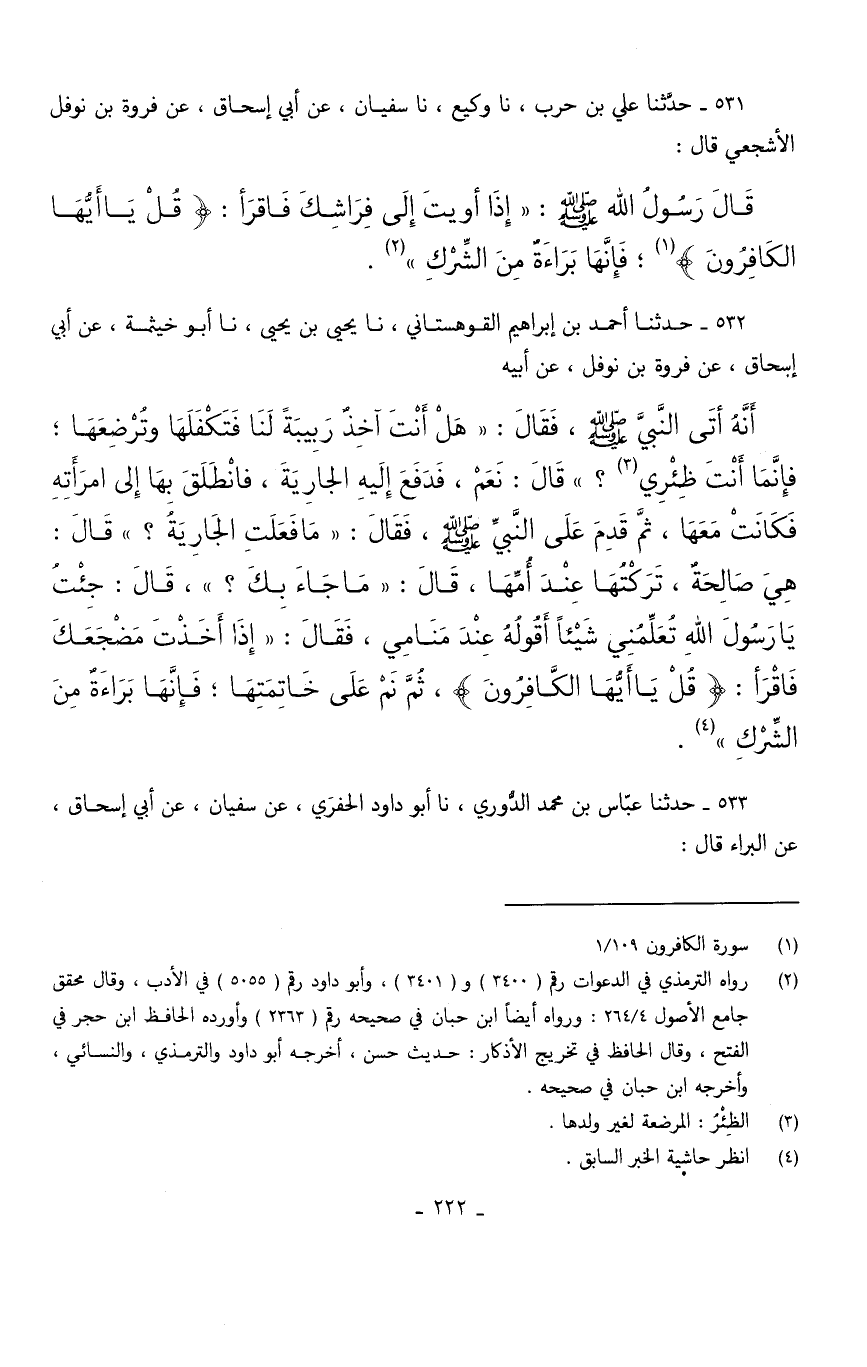 ٥٣١ ـ حدّثنا علي بن حرب ، نا وكيع ، نا سفيـان ، عن أبي إسحـاق ، عن فروة بن نوفل
الأشجعي قال :
قَـالَ رَسُـولُ الله ﷺ : « إِذَا أويـتَ إِلَى فِرَاشِـكَ فَـاقرَأ : ﴿ قُـلْ يَـاأَيُّهَـا
الكَافِرُونَ ﴾(١) ؛ فَإِنَّهَا بَرَاءَةٌ مِنَ الشِّرْكِ »(٢) .
٥٣٢ ـ حـدثنـا أحمـد بن إبراهيم القـوهستـاني ، نـا يحيى بن يحيى ، نـا أبـو خيثـة ، عن أبي
إسحاق ، عن فروة بن نوفل ، عن أبيه
أَنَّهُ أتَى النَّبيَّ ﷺ ، فَقَالَ : « هَلْ أَنْتَ آخِذٌ رَبِيبَةً لَنَا فَتَكْفَلَهَا وتُرْضِعَهَـا ؛
فإِنَّمَا أَنْتَ ظِئْرِي(٣) ؟ » قَالَ : نَعَمْ ، فَدَفَعَ إِلَيهِ الجارِيَةَ ، فانْطَلَقَ بِهَا إِلى امرَأَتِهِ
فَكَانَتْ مَعَهَا ، ثمَّ قَدِمَ عَلَى النَّبيِّ ﷺ ، فَقَالَ : « مَافَعَلَتِ الجَارِيَةُ ؟ » قَـالَ :
هِيَ صَالِحَةٌ ، تَرَكْتُهَـا عِنْـدَ أُمِّهَـا ، قَـالَ : « مَـاجَـاءَ بِـكَ ؟ » ، قَـالَ : جِئْتُ
يَارَسُولَ اللهِ تُعَلِّمُني شَيْئاً أَقُولُهُ عِنْدَ مَنَامِي ، فَقَالَ : « إِذَا أَخَـذْتَ مَضْجَعَـكَ
فَاقْرَأ : ﴿ قُلْ يَـاأَيُّهَـا الكَّـافِرُونَ ﴾ ، ثُمَّ نَمْ عَلَى خَـاتِمَتِهَـا ؛ فَـإِنَّهَـا بَرَاءَةٌ مِنَ
الشِّرْكِ »(٤) .
٥٣٣ ـ حدثنا عبّاس بن محمد الدُّوري ، نا أبو داود الحفرَي ، عن سفيان ، عن أبي إسحـاق ،
عن البراء قال :
(١) سورة الكافرون ١/١٠٩
(٢) رواه الترمذي في الدعوات رقم ( ٣٤٠٠ ) و ( ٣٤٠١ ) ، وأبو داود رقم ( ٥٠٥٥ ) في الأدب ، وقال محقق
جامع الأصول ٢٦٤/٤ : ورواه أيضاً ابن حبان في صحيحه رقم ( ٢٣٦٣ ) وأورده الحافـظ ابن حجر في
الفتح ، وقال الحافظ في تخريج الأذكار : حـديث حسن ، أخرجـه أبو داود والترمـذي ، والنسـائي ،
وأخرجه ابن حبان في صحيحه .
(٣) الظِئْرُ : المرضعة لغير ولدها .
(٤) انظر حاشية الخبر السابق .
ـ ٢٢٢ ـ